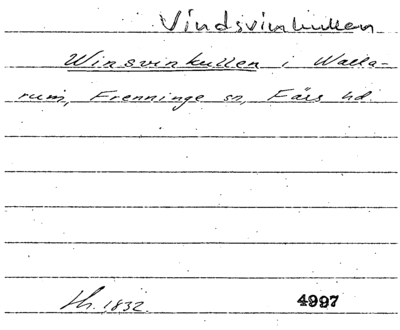 Vindsvinkullen
Winsvinkullen i Walla-
rum, Frenninge sn, Färs hd.
Sh. 1832. 4997